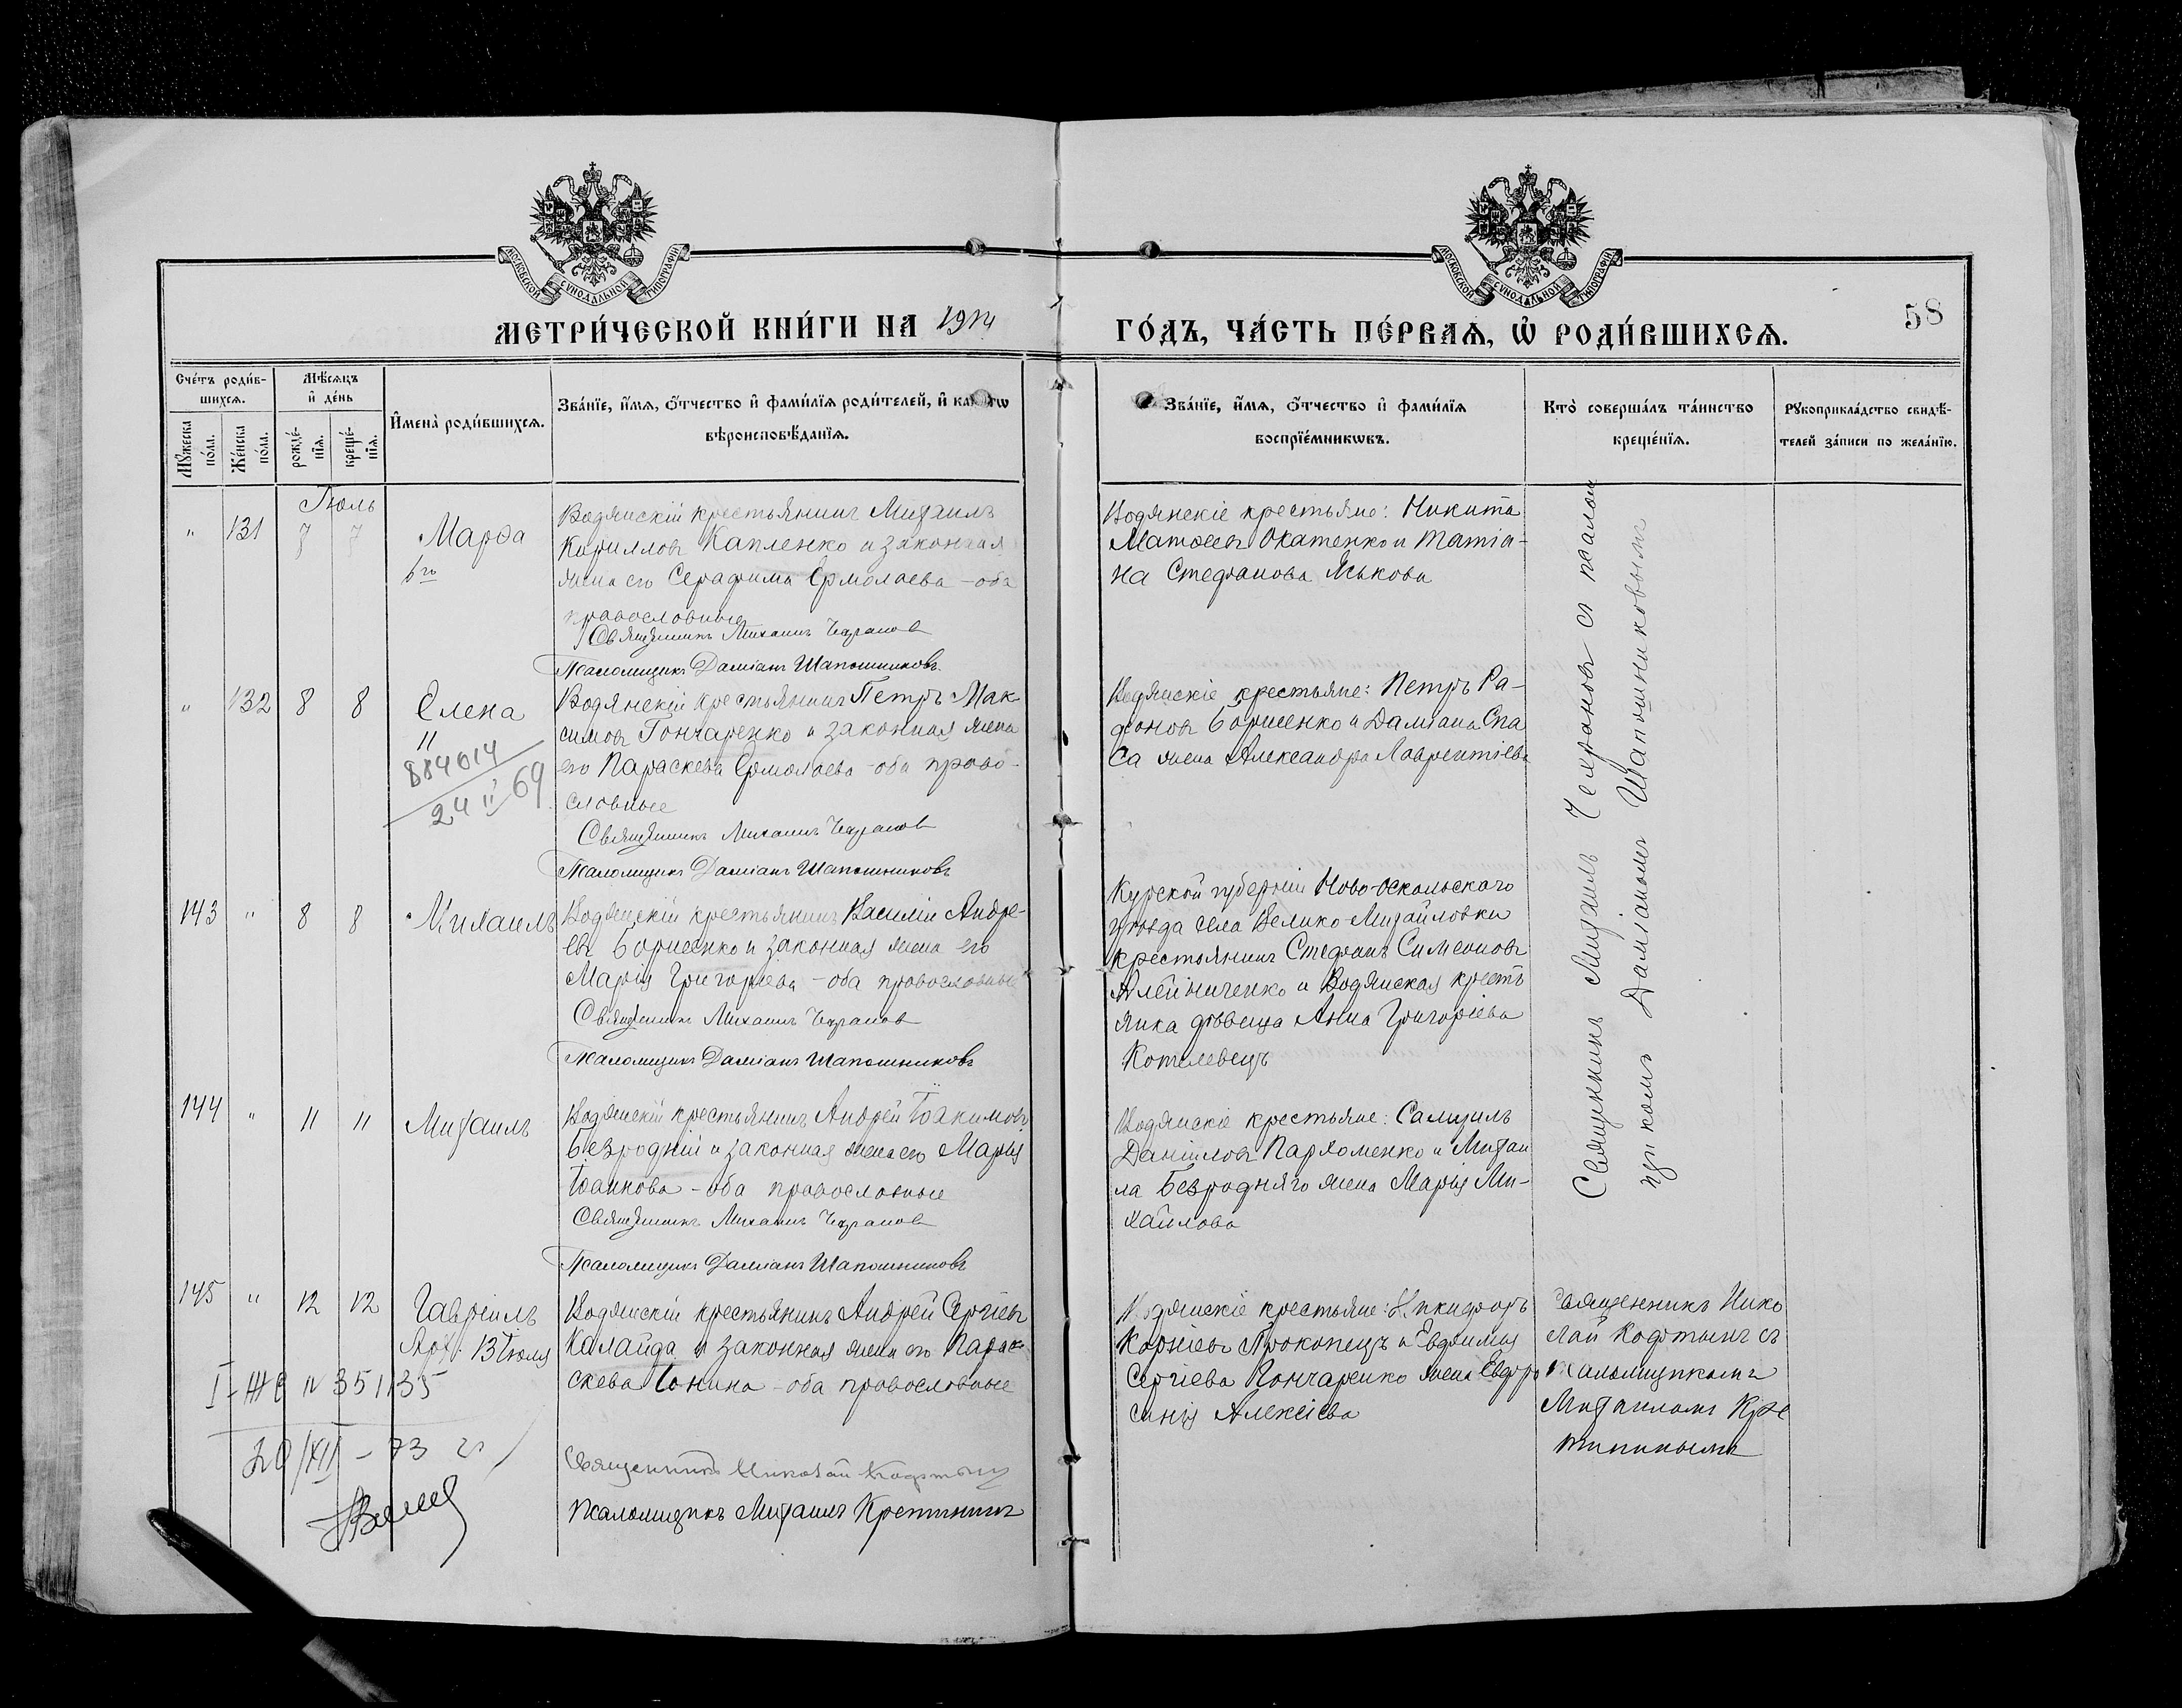 МОСКОВСКОЙ СѴНОДАЛЬНОЙ ТИПОГРАФІИ
МОСКОВСКОЙ СѴНОДАЛЬНОЙ ТИПОГРАФІИ
58
МЕТРИ́ЧЕСКОЙ КНИ́ГИ НА 1914
ГО́ДЪ, ЧА́СТЬ ПЕ́РВАѦ, Ѡ҆ РОДИ́ВШИХСѦ.
Сче́тъ роди́в-
шихсѧ.
Мѣ́сѧцъ
и҆ де́нь
Мꙋ́жеска
по́ла.
Же́нска
по́ла.
рожде́-
нїѧ.
креще́-
нїѧ.
И҆мена̀ роди́вшихсѧ.
Зва́нїе, и҆́мѧ, ѻ҆́тчество и҆ фами́лїѧ роди́телей, и҆
вѣроисповѣ́данїѧ.
Зва́нїе, и҆́мѧ, ѻ҆́тчество и҆ фами́лїѧ
воспрїе́мникѡвъ.
Кто̀ соверша́лъ та́инство
креще́нїѧ.
Рꙋкоприкла́дство свидѣ́-
телей за́писи по жела́нїю.
Іюль
" 131 7 7 Марѳа
6го
Водянскій крестьянинъ Михаилъ
Кирилловъ Капленко и законная
жена его Серафима Ермолаева - оба
православные
Священникъ Михаилъ Чехранов
Псаломщикъ Даміанъ Шапошниковъ
Водянскіе крестьяне: Никита
Матѳеевъ Окатенко и Татіа-
на Стефанова Яськова
" 132 8 8 Елена
"
884014
24 II 69
Водянскій крестьянинъ Петръ Мак
симовъ Гончаренко и законная жена
его Параскева Ермолаева - оба право-
славные
Священникъ Михаилъ Чехранов
Псаломщикъ Даміанъ Шапошниковъ
Водянскіе крестьяне: Петръ Ра-
фоновъ Борисенко и Даміана Спа
са жена Александра Лаврентіева
143 " 8 8 Михаилъ
Водянскій крестьянинъ Василій Андре-
евъ Борисенко и законная жена его
Марія Григорьева - оба православные
Священникъ Михаилъ Чехранов
Псаломщикъ Даміанъ Шапошниковъ
Курской губерніи Ново-Оскольскаго
уѣзда села Велико-Михайловки
крестьянинъ Стефанъ Симеоновъ
Алейниченко и Водянская кресть
янка дѣвица Анна Григоріева
Котелевецъ
144 " 11 11 Михаилъ
Водянскій крестьянинъ Андрей Іоакимовъ
Безродній и законная жена его Марія
Іоанова - оба православные
Священникъ Михаилъ Чехранов
Псаломщикъ Даміанъ Шапошниковъ
Водянскіе крестьяне: Самуилъ
Даніиловъ Пархоменко и Михаи
ла Безродняго жена Марія Ми-
хайлова
Священникъ Михаилъ Чехрановъ съ псалом
щикомъ Даміаномъ Шапошниковымъ
145 " 12 12 Гавріилъ
Арх. 13 Іюля
I-ЖС N 351135
20/XII - 73 г
Водянскій крестьянинъ Андрей Сергіевъ
Калайда и законная жена его Парас
скева Іонина - оба православные
Священникъ Николай Кофтынъ
Псаломщикъ Михаилъ Кретининъ
Водянскіе крестьяне: Никифоръ
Корніевъ Прокопецъ и Евдокимія
Сергіева Гончаренко жена Евфро
синія Алексіева
Священникъ Нико
лай Кофтынъ съ
псаломщикомъ
Михаиломъ Кре
тининымъ